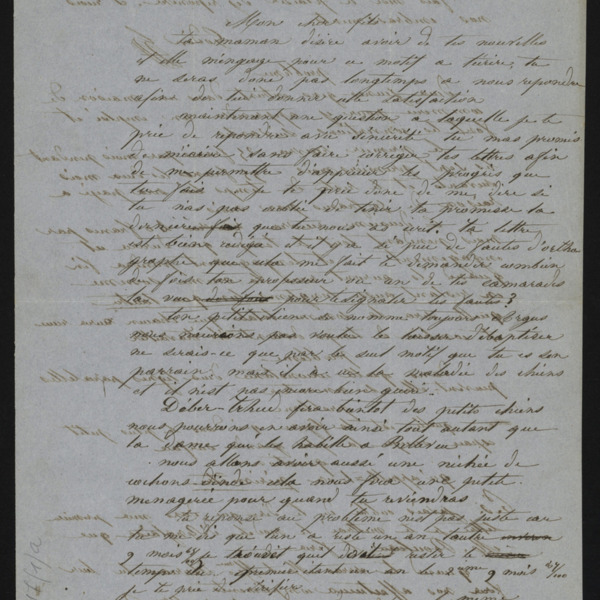 Mon cher fils
ta maman désire avoir de tes nouvelles
et elle m'engage pour ce motif a t'ecrire, tu
ne seras donc pas longtemps a nous repondre
afin de lui donner cette satisfaction
maintenant une question a laquelle je te
prie de repondre avec sincerité tu mas promis
de m'écrire sans faire corriger tes lettres afin
de me permettre d'apprecier les progrès que
tu fais je te prie donc de me dire si
tu n'as pas oublié de tenir ta promesse la
derniere fois que tu nous a ecrit ta lettre
est bien redigée et il y a si peu de fautes d'ortho
graphe que cela me fait te demander combien
de fois ton professeur ou un de tes camarades
la vue pour te signaler tes fautes ?
ton petit chien se nomme toujours Argus
nous n'aurions pas voulu le laisser débaptiser
ne serais-ce que par le seul motif que tu es son
parrain mais il a eu la maladie des chiens
et il n'est pas encore bien guéri
fera bientot des petits chiens
nous pourrons en avoir ainsi tout autant que
la dame qui les habille a Bellevue
nous allons avoir aussi une nichée de
cochons d'inde cela nous fera une petite
menagerie pour quand tu reviendras
ta reponse au probleme n'est pas juste car
tu me dis que l'un a resté un an l'autre
9 mois et que doit rester le
temps du premier etant un an 9 mois
je te prie de verifier
meme